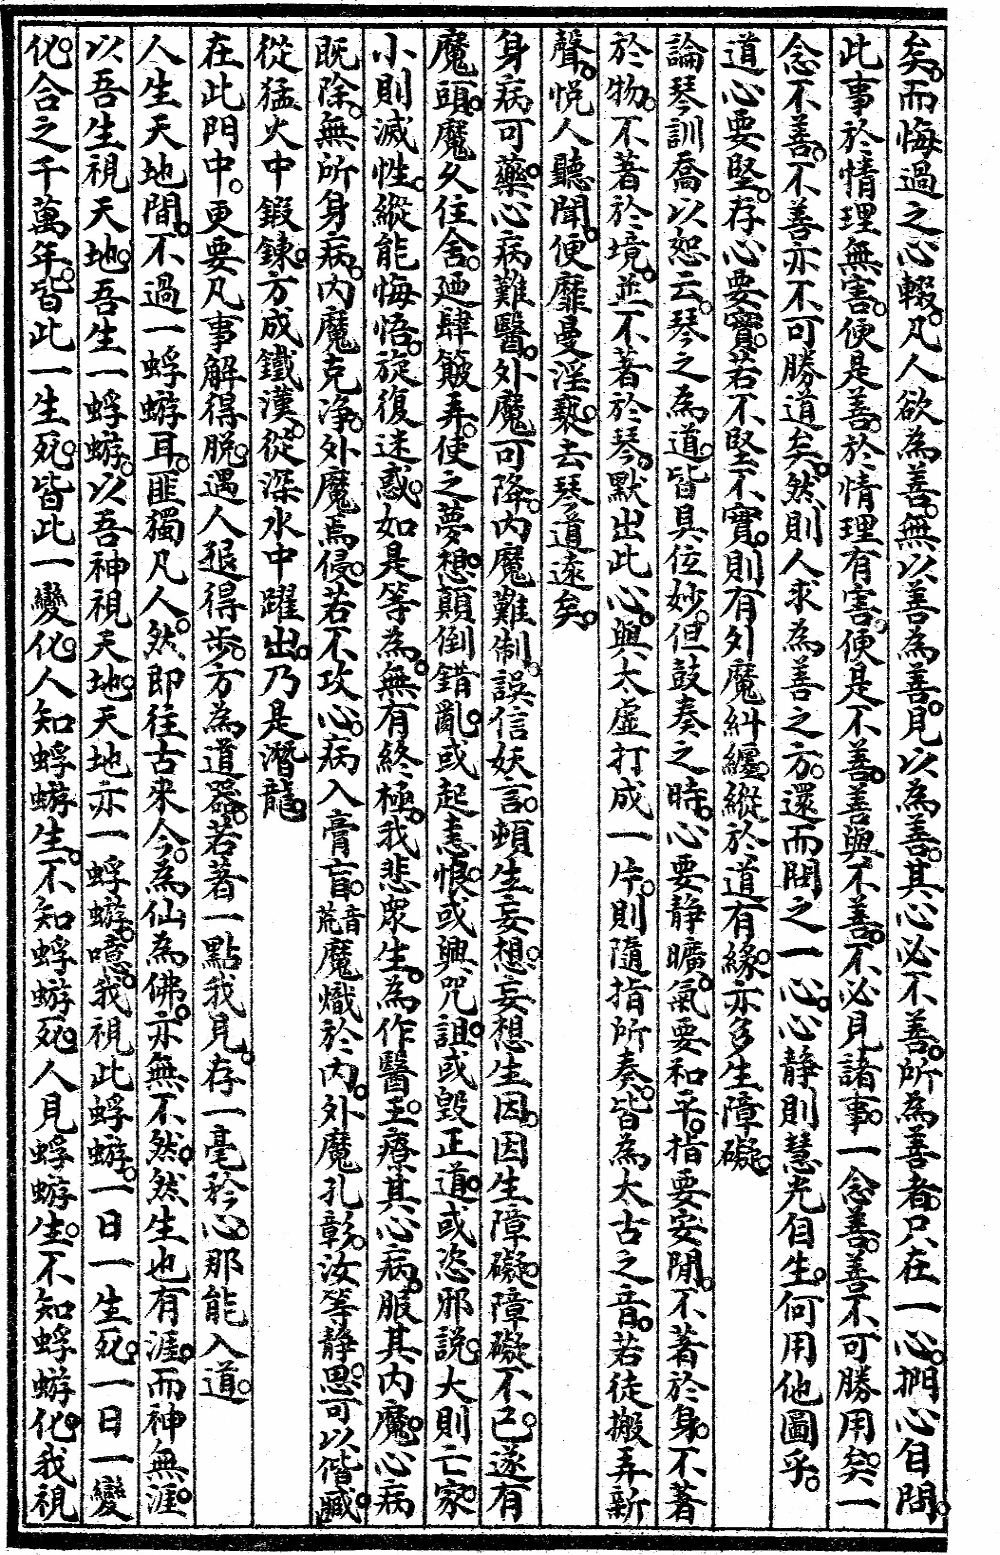 矣。而悔過之心輟。凡人欲為善。無以善為善。見以為善。其心必不善。所為善者。只在一心。捫心自問。
此事於情理無害。便是善。於情理有害。便是不善。善與不善。不必見諸事。一念善。善不可勝用矣。一
念不善。不善亦不可勝道矣。然則人求為善之方。還而問之一心。心靜則慧光自生。何用他圖乎。
道心要堅。存心要實。若不堅不實。則有外魔糾纏。縱於道有緣。亦多生障礙。
論琴訓喬以恕云。琴之為道。皆具位妙。但鼓奏之時。心要靜曠。氣要和平。指要安閒。不著於身。不著
於物。不著於境。並不著於琴。默出此心。與太虛打成一片。則隨指所奏。皆為太古之音。若徒搬弄新
聲。悅人聽聞。便靡曼淫褻。去琴道遠矣。
身病可藥。心病難醫。外魔可降。內魔難制。誤信妖言。頓生妄想。妄想生因。因生障礙。障礙不已。遂有
魔頭。魔久住舍。廼肆簸弄。使之夢想。顛倒錯亂。或起恚恨。或興咒詛。或毀正道。或恣邪說。大則亡家。
小則滅性。縱能悔悟。旋復迷惑。如是等為。無有終極。我悲眾生。為作醫王。療其心病。服其內魔。心病
既除。無所身病。內魔克淨。外魔焉侵。若不攻心。病入膏肓。音荒魔熾於內。外魔孔彰。汝等靜思。可以偕臧。
從猛火中鍜鍊。方成鐵漢。從深水中躍出。乃是潛龍。
在此門中。更要凡事解得脫。遇人退得步。方為道器。若著一點我見。存一毫矜心。那能入道。
人生天地間。不過一蜉蝣耳。匪獨凡人。然。即往古來今。為仙為佛。亦無不然。然生也有涯。而神無涯。
以吾生視天地。吾生一蜉蝣。以吾神視天地。天地亦一蜉蝣。噫。我視此蜉蝣。一日一生死。一日一變
化。合之千萬年。皆此一生死。皆此一變化。人知蜉蝣生。不知蜉蝣死。人見蜉蝣生。不知蜉蝣化。我視